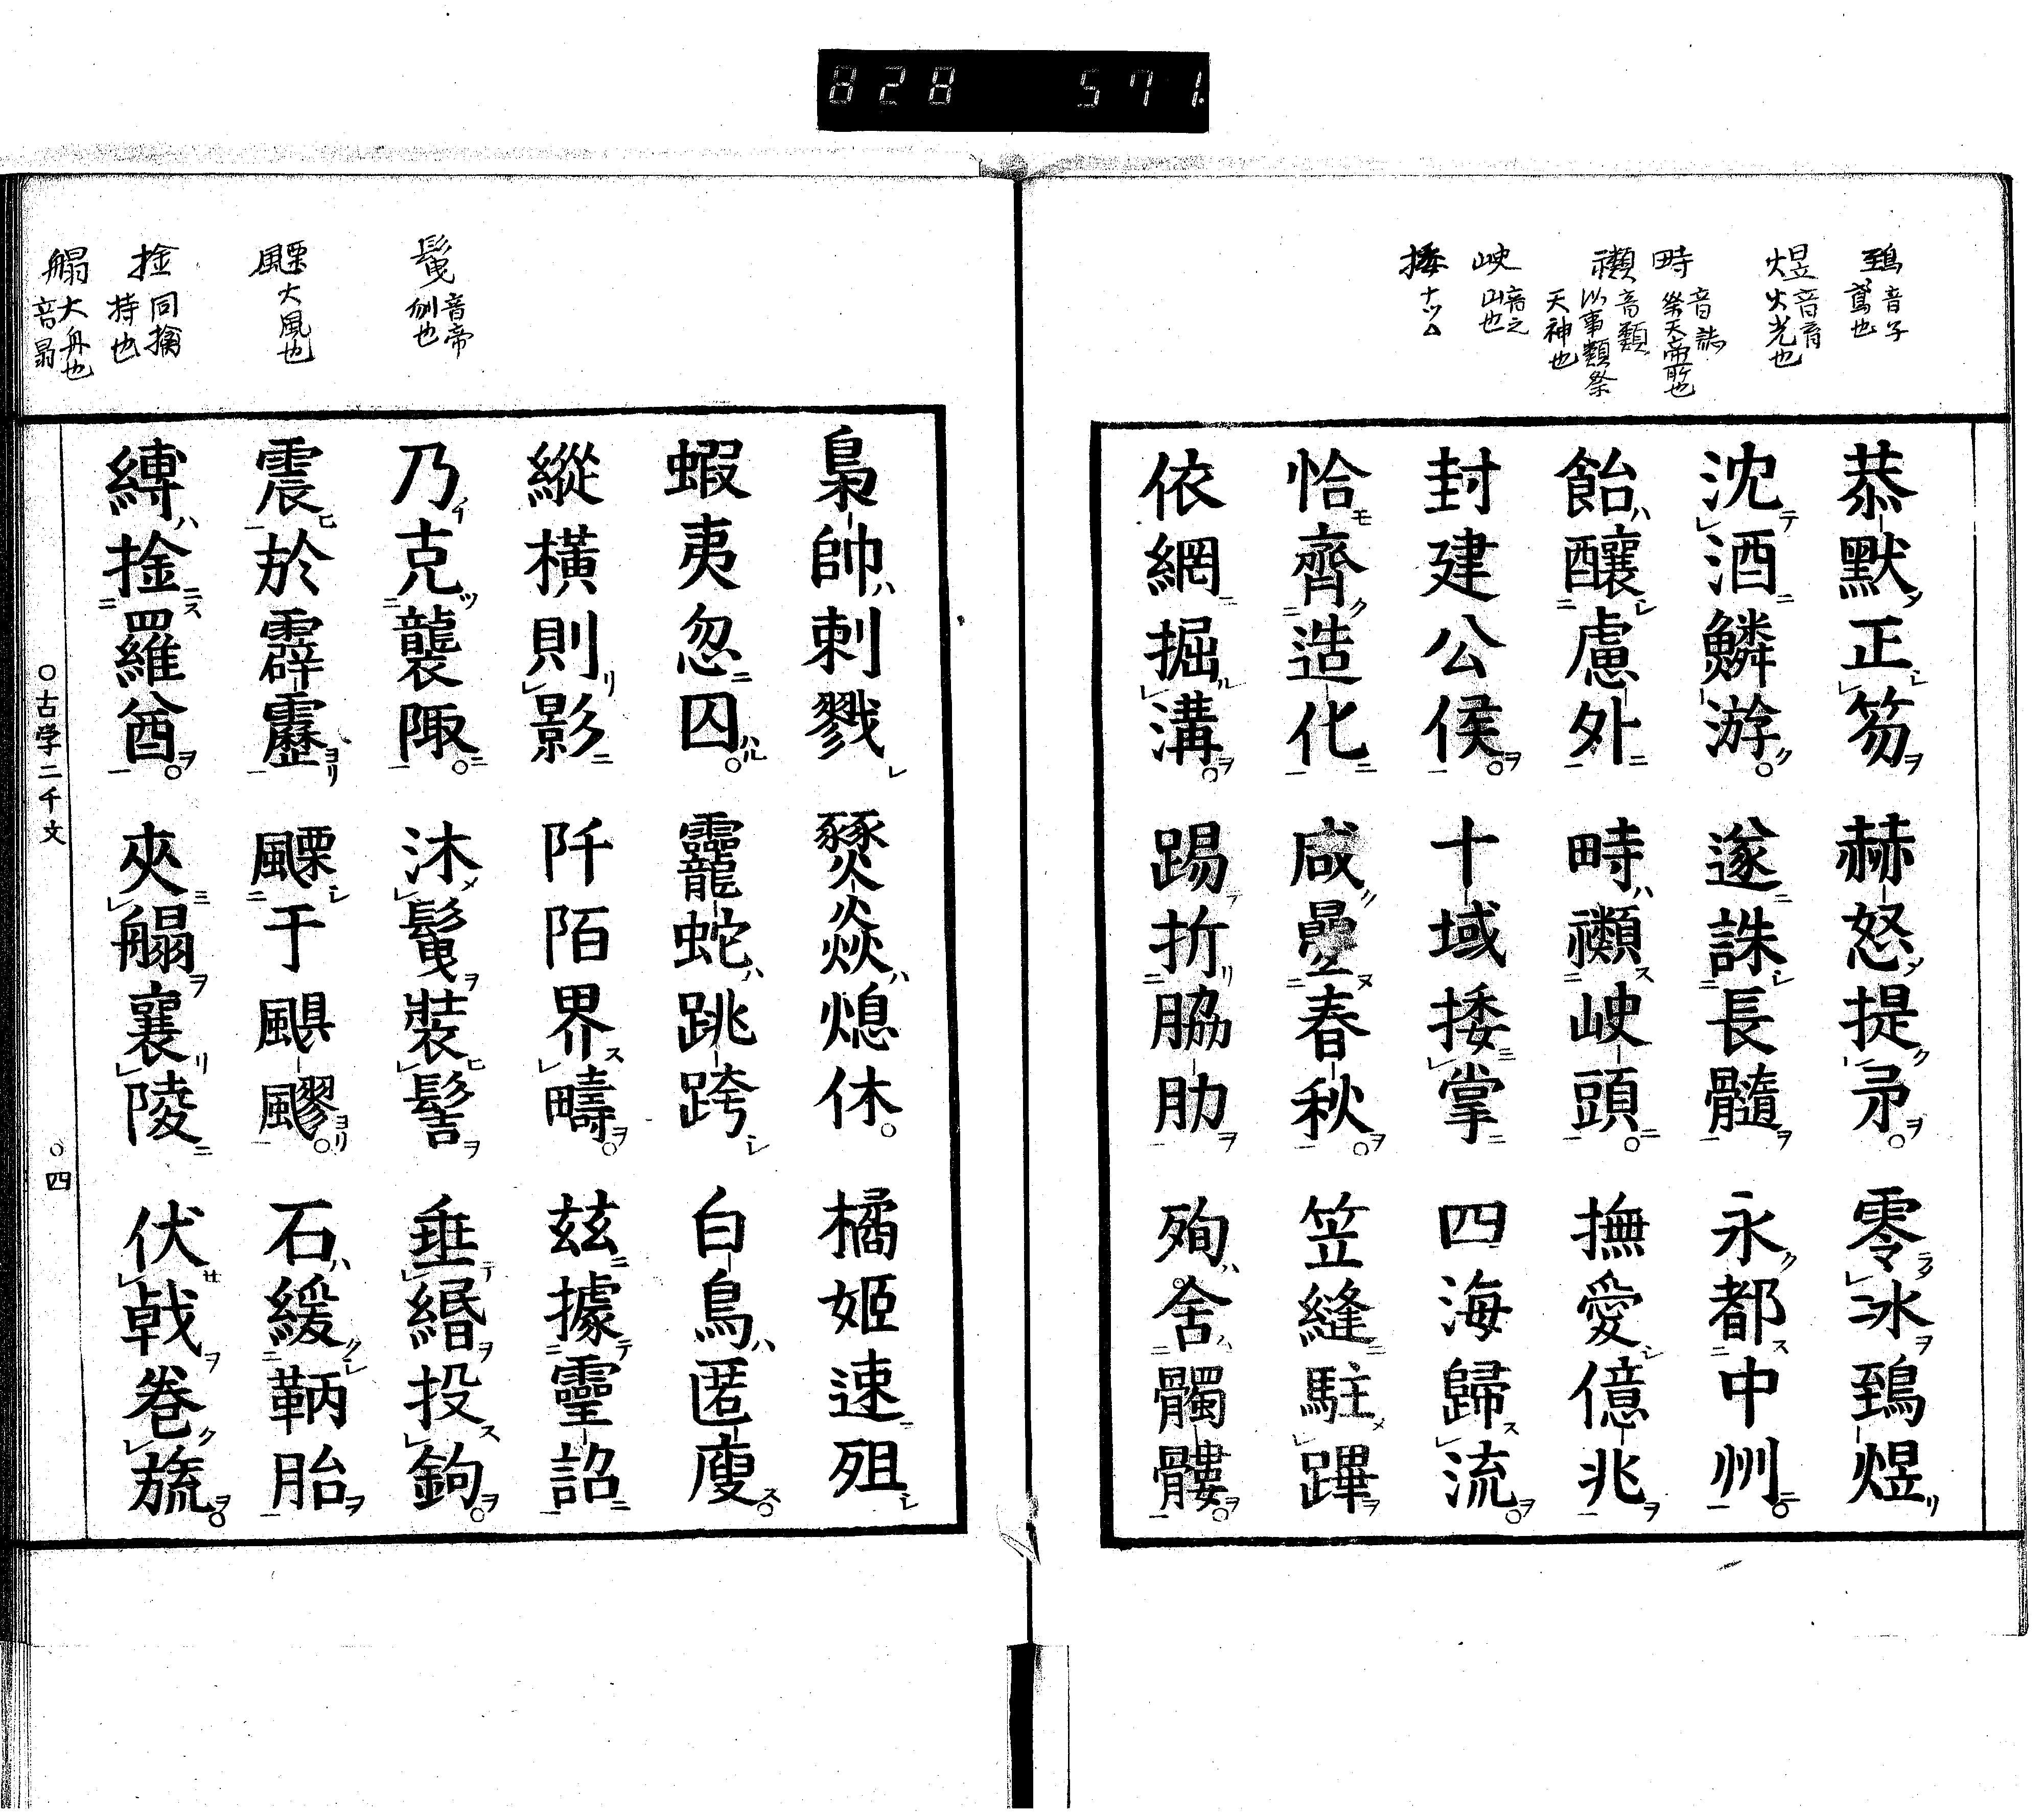 828 571
鵄 音子 鳶也
煜 音育 火光也
畤 音誌 祭天帝所也
禷 音類 以事類祭天神也
㟍 音之 山也
捼 ナヅム
恭默正笏 赫怒提矛 零冰鵄煜
沈酒鱗游 遂誅長髓 永都中州
飴釀慮外 畤禷㟍頭 撫愛億兆
封建公侯 十域捼掌 四海歸流
恰齊造化 咸疊春秋 笠縫駐蹕
依網掘溝 踢折脇肋 殉舍髑髏
髢 音帝 刎也
飃 大風也
捦 同擒 持也
艒 大舟也 音
梟帥刺戮 燹焱熄休 橘姬速殂
蝦夷忽囚 龗蛇跳跨 白鳥匿廋
縱橫則影 阡陌界疇 茲據靈詔
乃克襲陬 沐髢裝髻 垂緡投鉤
震於霹靂 飃于颶飂 石緩鞆胎
縛捦羅酋 夾艒襄陵 伏戟卷旒
○古学二千文 ○四